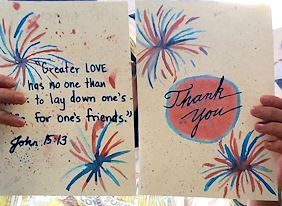 "Greater LOVE
has no one than
to lay down one's
for one's friends."
John 15:13
Thank
you